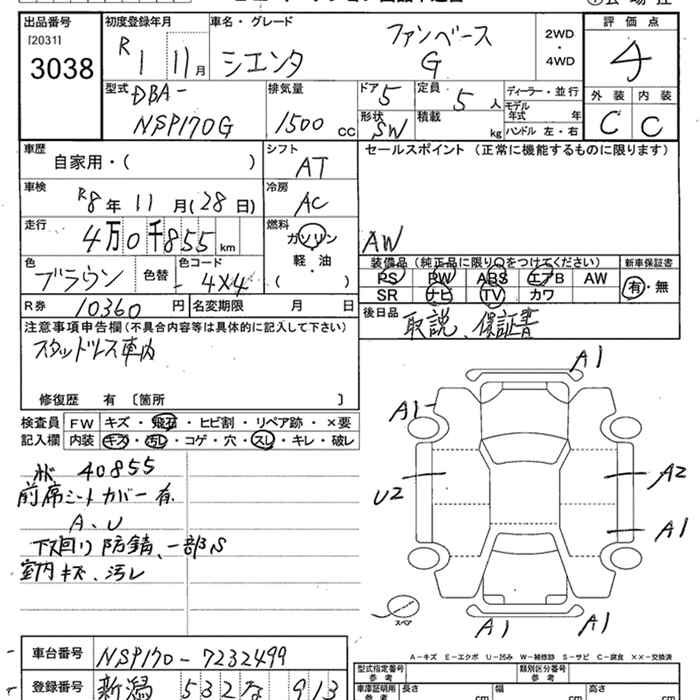 出品番号 [2031] 3038
初度登録年月 R 1 11月
車名・グレード シエンタ ファンベース G
2WD・4WD
評価点 4
外装 C 内装 C
型式 DBA- NSP170G
排気量 1500 cc
ドア 5 定員 5 人
形状 SW 積載 kg
ディーラー・並行
モデル年式 年
ハンドル 左・右
車歴 自家用・( )
シフト AT
セールスポイント (正常に機能するものに限ります)
AW
車検 R8年 11月(28日)
冷房 AC
走行 4万0千855 km
燃料 ガソリン 軽・油 ( )
色 ブラウン 色替 色コード 4X4
装備品 (純正品に限り○をつけてください) 新車保証書
PS PW ABS エアB AW 有・無
SR ナビ TV カワ
R券 10360円 名変期限 月 日
後日品 取説、保証書
注意事項申告欄(不具合内容等は具体的に記入して下さい)
スタッドレス車内
修復歴 有 〔箇所 〕
検査員記入欄
FW キズ・飛石・ヒビ割・リペア跡・×要
内装 キズ・汚レ・コゲ・穴・スレ・キレ・破レ
40855
前席シートカバー有
A、U
下回り防錆、一部S
室内キズ、汚レ
A1
A1
U2
A2
A1
A1
A1
スペア
A-キズ E-エクボ U-凹み W-補修跡 S-サビ C-腐食 ××-交換済
車台番号 NSP170-7232499
登録番号 新潟 532 な 913
型式指定番号 参考
類別区分番号 参考
車庫証明用 参考 長さ cm 幅 cm 高さ cm